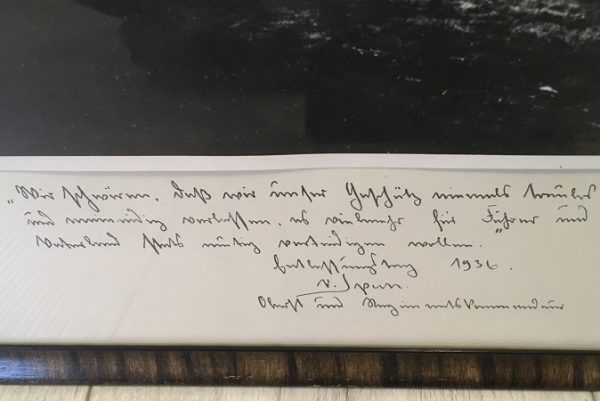 „Wir schwören, daß wir unser Geschütz niemals treulos
und meineidig verlassen, es vielmehr für Führer und
Vaterland stets mutig verteidigen wollen."
Entlassungstag 1936.
v.
Oberst und Regimentskommandeur